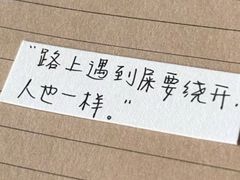 "路上遇到屎要绕开,
人也一样。"